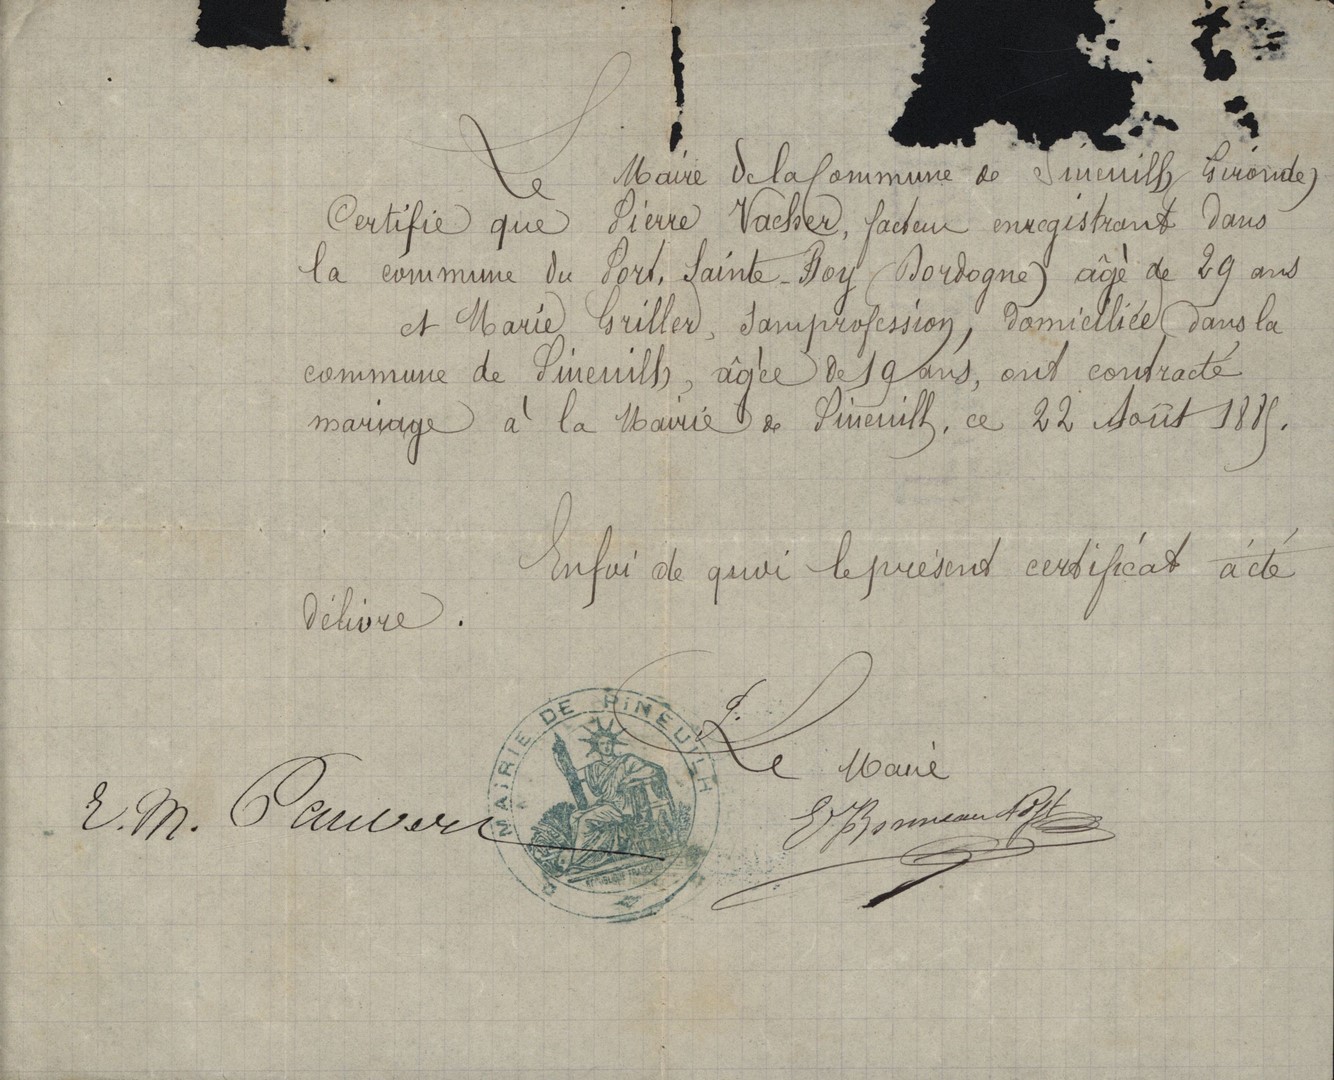 Le Maire de la Commune de Pineuilh (Gironde)
Certifie que Pierre Vacher, facteur enregistrant dans
la commune du Port. Sainte-Foy (Dordogne) âgé de 29 ans
et Marie Griller, sans profession, domiciliée dans la
commune de Pineuilh, âgée de 19 ans, ont contracté
mariage à la Mairie de Pineuilh, ce 22 Août 1885.
En foi de quoi le présent certificat à été
délivre.
P. Le Maire
E. M. Pauvert
E. Bonneau
MAIRIE DE PINEUILH